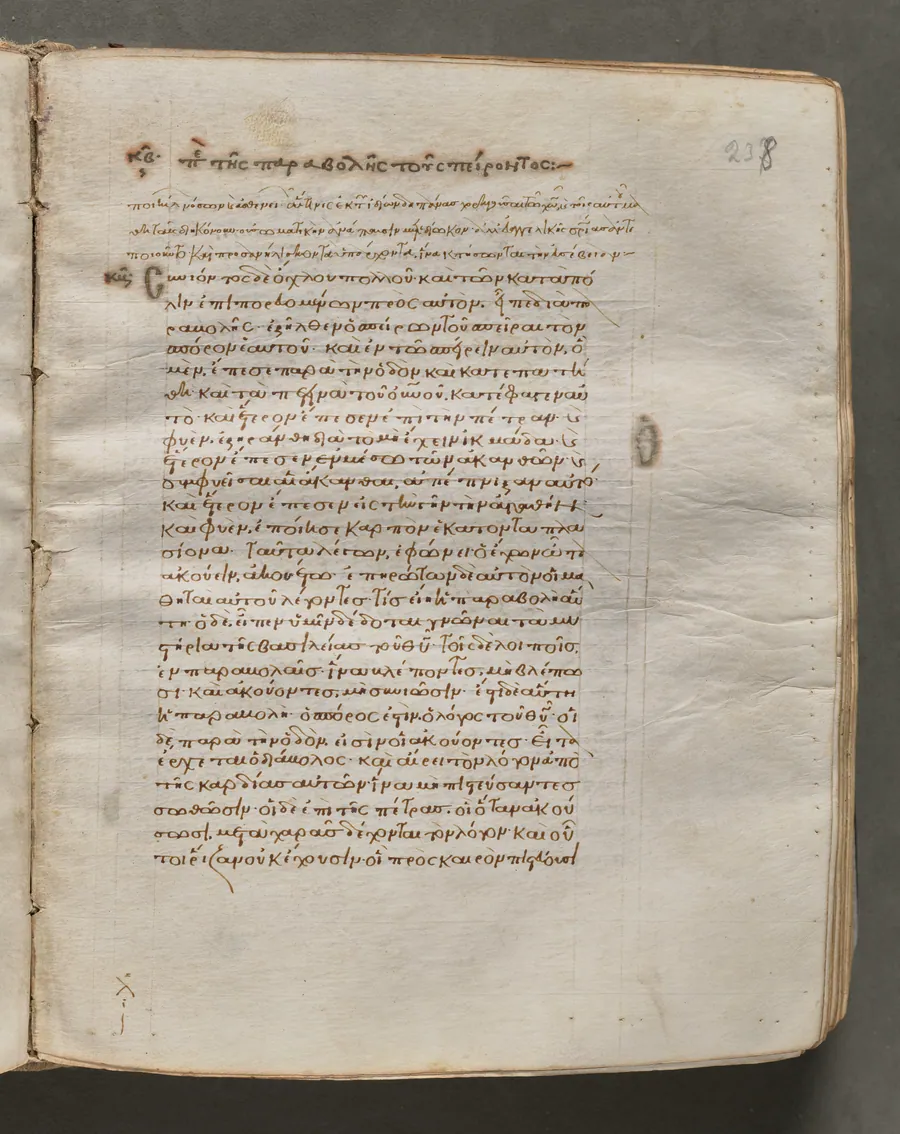 κβ· πε τῆς παραβολῆς τοῦ σπείροντος:~
238
Συνιόντος δὲ ὄχλου πολλοῦ· καὶ τῶν κατὰ πό
λιν ἐπιπορευομένων πρὸς αὐτόν. εἶπε διὰ πα
ραβολῆς· ἐξῆλθεν ὁ σπείρων τοῦ σπεῖραι τὸν
σπόρον ἑαυτοῦ· καὶ ἐν τῶ σπείρειν αὐτὸν, ὃ
μὲν, ἔπεσε παρὰ τὴν ὁδὸν καὶ κατεπατή
θη· καὶ τὰ πετεινὰ τοῦ οὐνοῦ, κατέφαγεν αὐ
τὸ· καὶ ἕτερον ἔπεσεν ἐπὶ τὴν πέτραν· καὶ
φυὲν, ἐξηράνθη διὰ τὸ μὴ ἔχειν ἰκμάδα· καὶ
ἕτερον ἔπεσεν ἐν μέσω τῶν ἀκανθῶν· καὶ
συμφυεῖσαι αἱ ἄκανθαι, ἀπέπνιξαν αὐτό·
καὶ ἕτερον ἔπεσεν εἰς τὴν γῆν τὴν ἀγαθὴν·
καὶ φυὲν, ἐποίησε καρπὸν ἑκατονταπλα
σίονα· Ταῦτα λέγων, ἐφώνει· ὁ ἔχων ὦτα
ἀκούειν, ἀκουέτω· ἐπηρώτων δὲ αὐτὸν οἱ μα
θηταὶ αὐτοῦ λέγοντες· Τίς εἴη ἡ παραβολὴ αὕ
τη· ὁ δὲ εἶπεν· ὑμῖν δέδοται γνῶναι τὰ μυ
στήρια τῆς βασιλείας τοῦ θυ· Τοῖς δὲ λοιποῖς,
ἐν παραβολαῖς· ἵνα βλέποντες, μὴ βλέπω
σι· καὶ ἀκούοντες, μὴ συνιῶσιν· ἔστι δὲ αὕτη
ἡ παραβολή· ὁ σπόρος ἐστὶν, ὁ λόγος τοῦ θυ· οἱ
δὲ παρὰ τὴν ὁδὸν, εἰσὶν οἱ ἀκούοντες· Εἶτα
ἔρχεται ὁ διάβολος· καὶ αἴρει τὸν λόγον ἀπὸ
τῆς καρδίας αὐτῶν· ἵνα μὴ πιστεύσαντες
σωθῶσιν· οἱ δὲ ἐπὶ τῆς πέτρας· οἳ ὅταν ἀκού
σωσι, μετὰ χαρᾶς δέχονται τὸν λόγον· καὶ οὗ
τοι ῥίζαν οὐκ ἔχουσιν· οἳ πρὸς καιρὸν πιστεύουσι